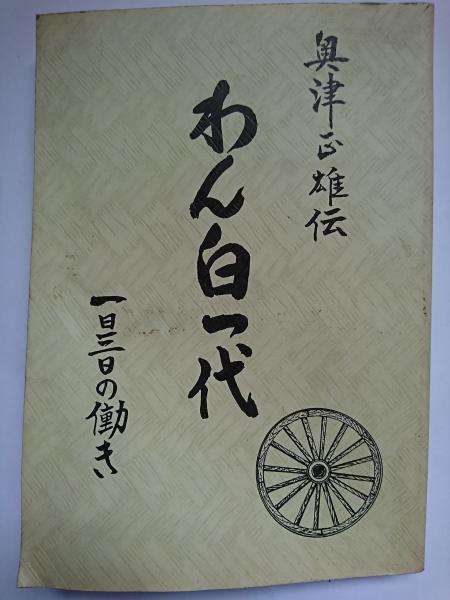 奥津正雄伝
わん白一代
一日三日の働き